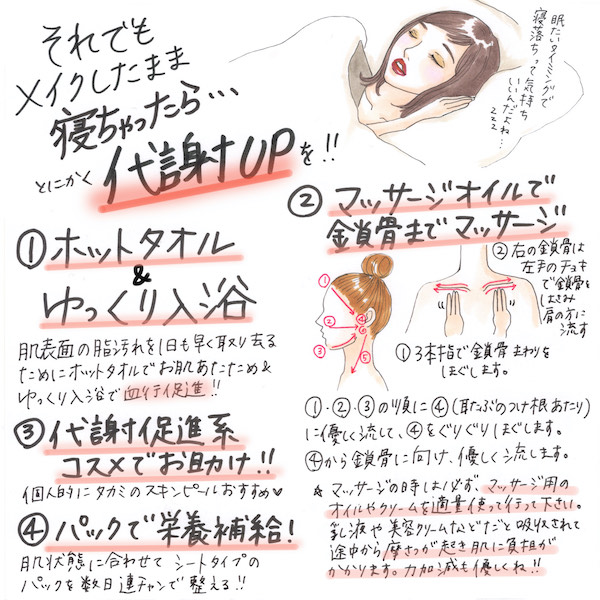 それでも
メイクしたまま
寝ちゃったら…
とにかく 代謝UPを!!
眠たいタイミングで
寝落ちって気持ち
いいんだよね…
zzz
① ホットタオル
&
ゆっくり入浴
肌表面の脂汚れを1日も早く取り去る
ためにホットタオルでお肌あたため&
ゆっくり入浴で血行促進!!
③ 代謝促進系
コスメでお助け!!
個人的にタカミのスキンピールおすすめ♥
④ パックで栄養補給!
肌状態に合わせて シートタイプの
パックを数日連チャンで整える!!
② マッサージオイルで
鎖骨までマッサージ
①
②
③
④
⑤
② 右の鎖骨は
左手のチョキ
で鎖骨を
はさみ
肩の方に
流す
① 3本指で鎖骨まわりを
ほぐします。
①・②・③の順に④(耳たぶのつけ根あたり)
に優しく流して、④をぐりぐりほぐします。
④から鎖骨に向け、優しく流します。
★ マッサージの時は必ず、マッサージ用の
オイルやクリームを適量使って行って下さい。
乳液や美容クリームなどだと吸収されて
途中から摩さつが起き肌に負担が
かかります。力加減も優しくね!!